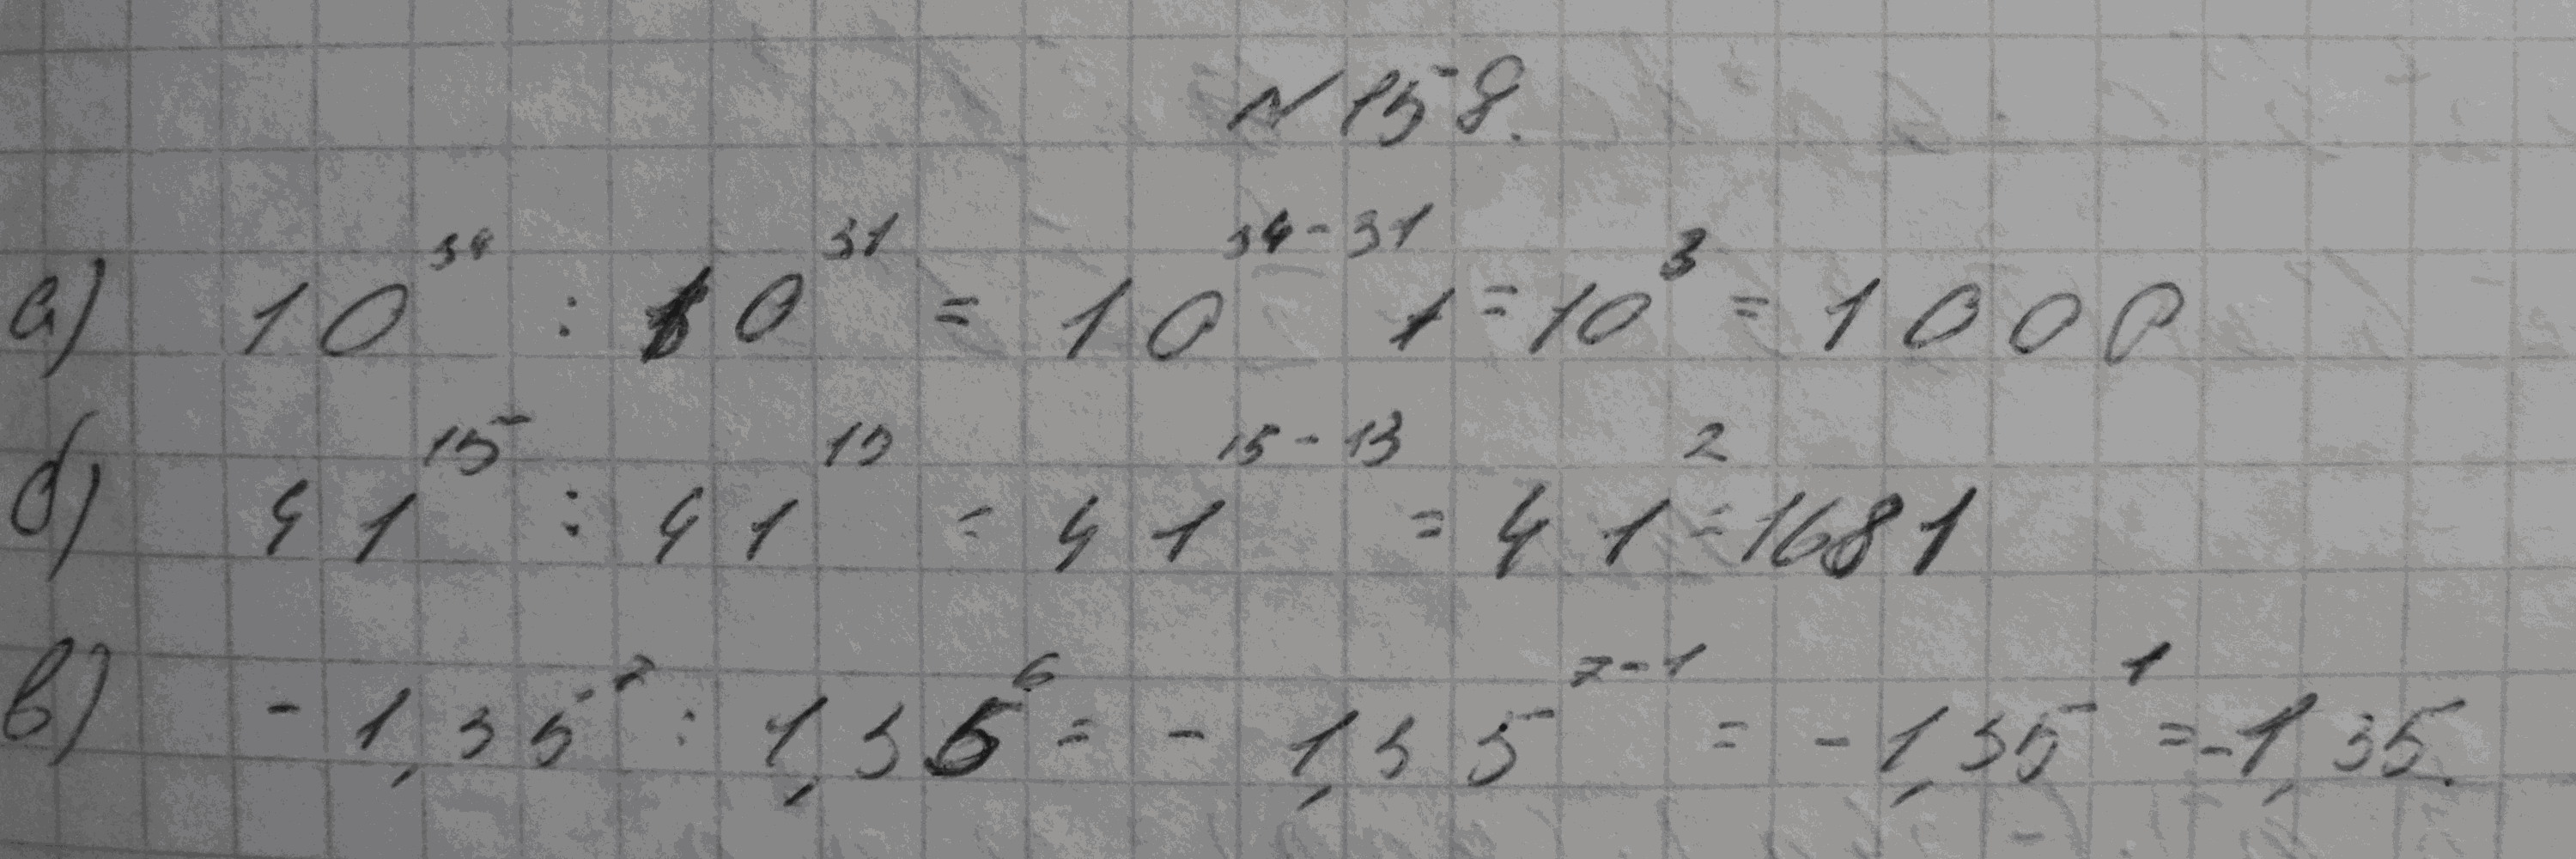 № 158.
а) 10³⁴ : 10³¹ = 10³⁴⁻³¹ 1 = 10³ = 1000
б) 41¹⁵ : 41¹³ = 41¹⁵⁻¹³ = 41² = 1681
в) - 1,35⁷ : 1,35⁶ = - 1,35⁷⁻¹ = - 1,35¹ = -1,35.